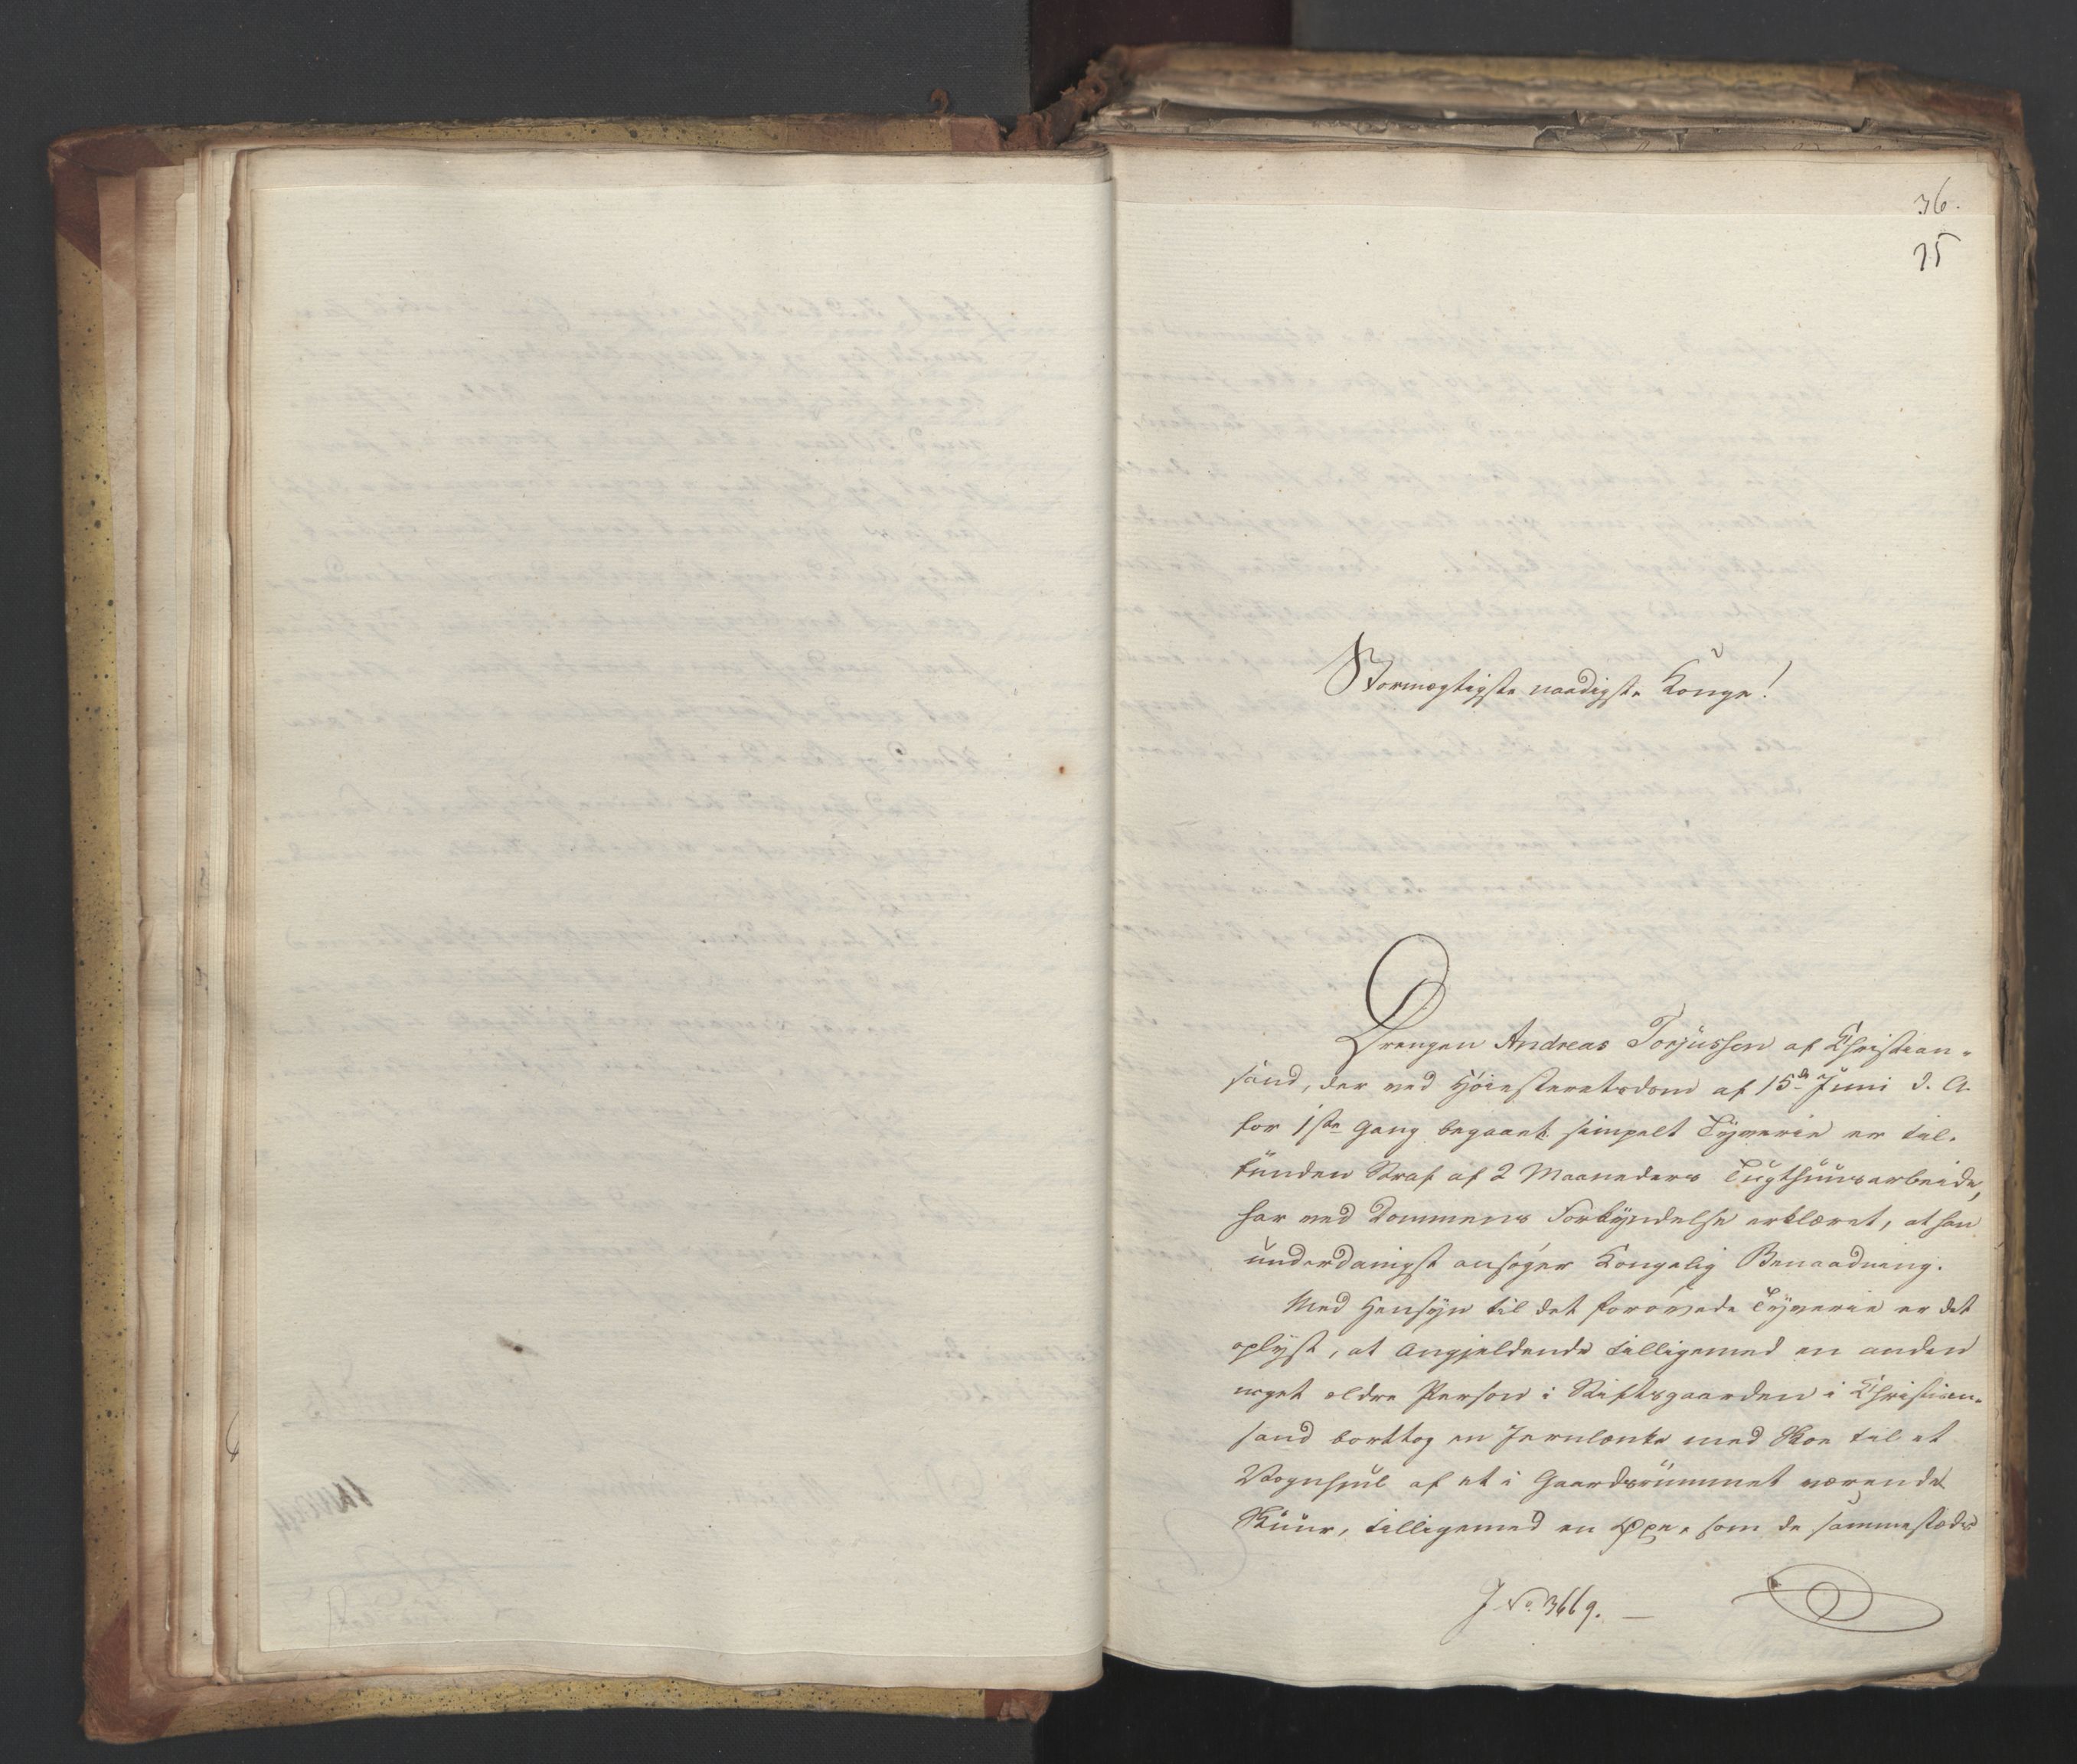 36.
25
Stormægtigste naadigste Konge!
Drengen Andreas Torjussen af Christian-
sand, der ved Høiesteretsdom af 15de Juni d. A.
for 1ste Gang begaaet simpelt Tyverie er til-
funden Straf af 2 Maaneders Tugthuusarbeide,
har ved Dommens Forkyndelse erklæret, at han
underdanigst ansøger Kongelig Benaadning.
Med Hensyn til det forøvede Tyverie er det
oplyst, at Angjeldende tilligemed en anden
noget ældre Person i Stiftsgaarden i Christian-
sand borttog en Jernlænke med Skoe til et
Vognhjul af et i Gaardsrummet værende
Skuur, tilligemed en Øxe, som de sammesteds
J No. 3669. —